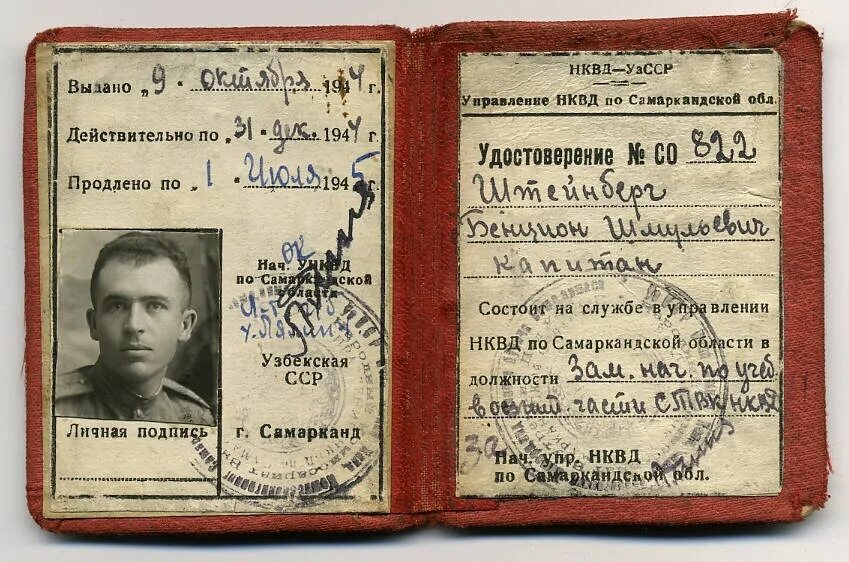 Выдано „9" октября 1944 г.
Действительно по „31" дек. 1944 г.
Продлено по „1" Июля 1945 г.
ОК
Нач. УНКВД
по Самаркандской
области
Узбекская
ССР
Личная подпись
г. Самарканд
НКВД—УзССР
Управление НКВД по Самаркандской обл.
Удостоверение № СО 822
Штейнберг
Бенцион Шмульевич
капитан
Состоит на службе в управлении
НКВД по Самаркандской области в
должности Зам. нач. по учеб.
воспит. части СТВК НКВД
За Нач. упр. НКВД
по Самаркандской обл.